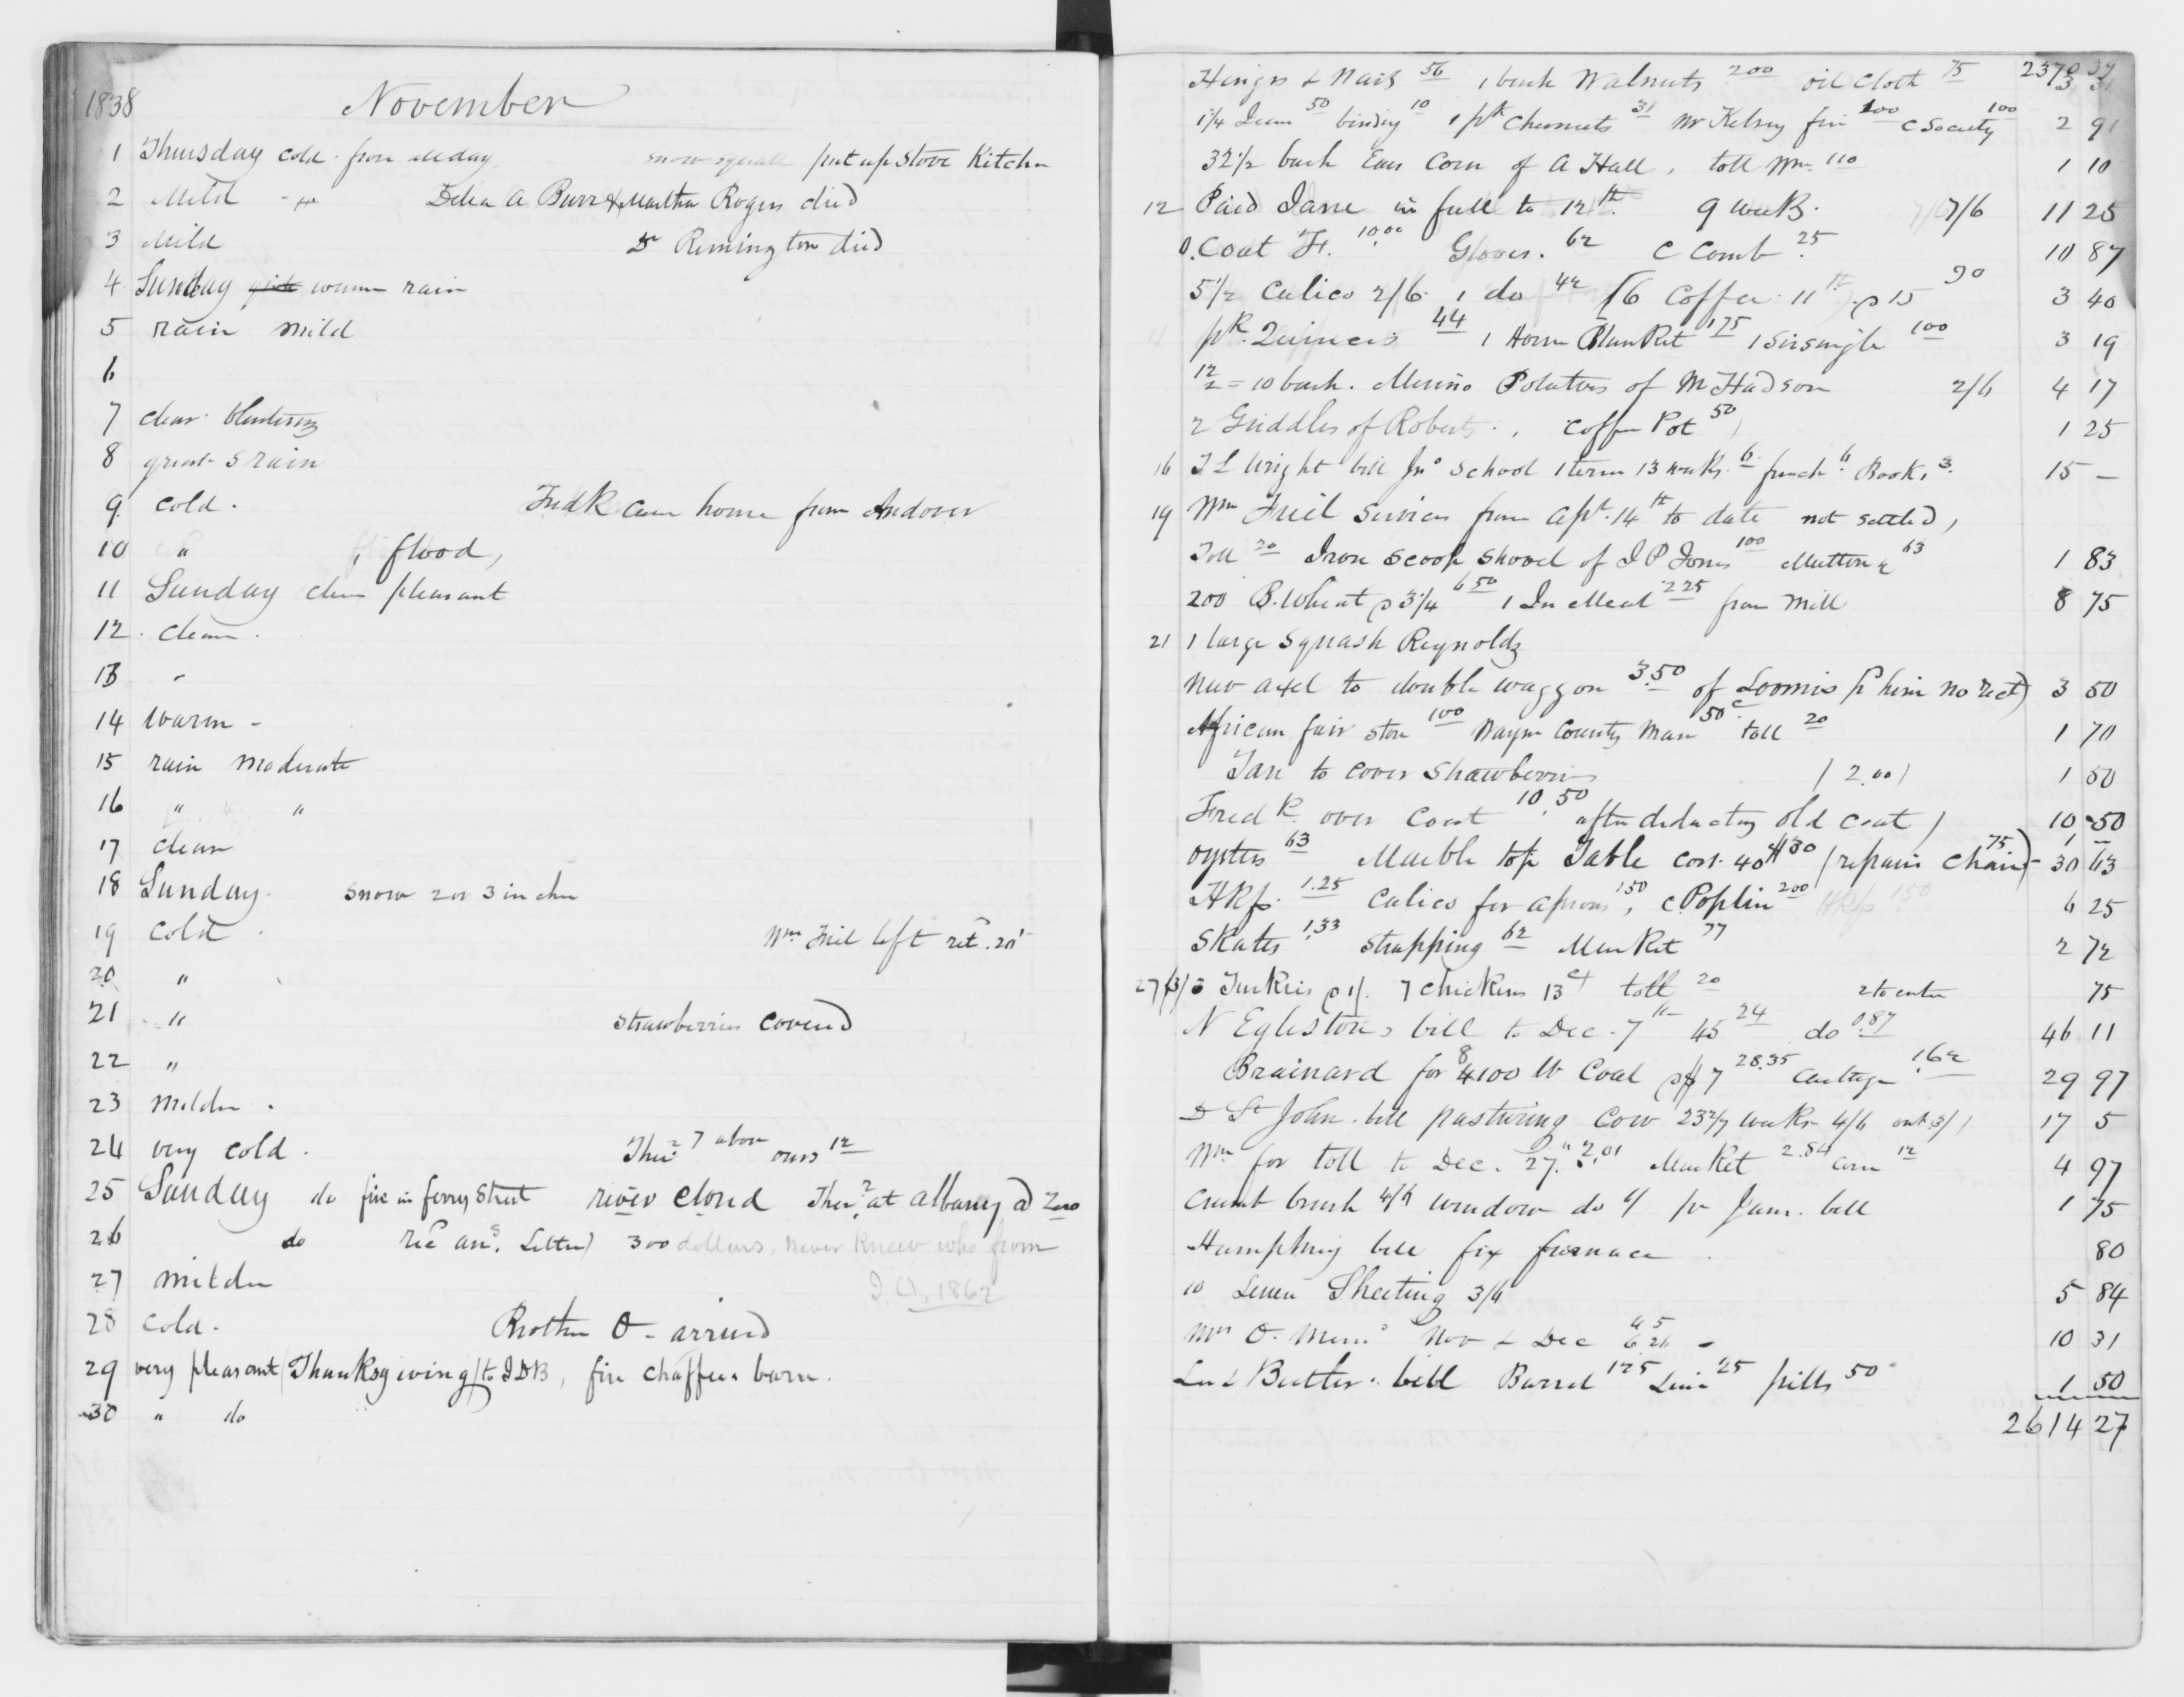 1838 November
1 Thursday cold. froze all day, snow squall put up Stove Kitchn
2 Mild Delia A Burr & Martha Rogers died
3 Mild Dr Remington died
4 Sunday warm rain
5 rain mild
6
7 clear blustering
8 great S rain
9 cold. Fredk came home from Andover
10 " flood,
11 Sunday clear pleasant
12. clear.
13 "
14 warm -
15 rain moderate
16 " "
17 clear
18 Sunday. snow 2 or 3 inches
19 cold. Wm Friel left ret. 20t
20 "
21 " strawberries covered
22 "
23 milder.
24 very cold. Ther. 7 above ours 12
25 Sunday do fire in ferry Street river closed Ther. at albany @ Zero
26 do rec ans. Letter) 300 dollars, never knew who from
27 milder 1862
28 cold. Brother O - arrived
29 very pleasant (Thanksgiving) to IDB, fire Chaffees barn.
30 " do
Hinges & Nails 56 1 bush Walnuts 200 oil Cloth 75 2370 39
3 31
1 1/4 50 binding 10 1 pk Chesnuts 31 Mr Kelsey 100 C Society 100 2 91
32 1/2 bush Ears Corn of A Hall, toll Wm. 110 1 10
12 Paid Jane in full to 12th. 9 weeks. 7/6 11 25
O. Coat F. 10.00 Gloves. 62 C Comb 25 10 87
5 1/2 Calico 2/6. 1 do 42 Coffee 11 15 90 3 40
pk. Quinces 44 1 Horse Blanket 175 1 Sirsingle 100 3 19
12/2 = 10 bush. Merino Potatoes of M Hudson 2/6 4 17
2 Griddles of Roberts., Coffee Pot 50 1 25
16 T L Wright bill Jno School 1 term 13 weeks. 6 french 6 Books 3. 15 —
19 Wm Friel Services from Apl. 14th to date not settled,
Toll 20 Iron Scoop Shovel of I P Jones 100 Mutton 63 1 83
200 B. Wheat @ 3 1/4 6 50 1 In Meal 2 25 from Mill 8 75
21 1 large Squash Reynolds
New axel to double waggon 3.50 of Loomis (p him no rect) 3 50
African fair store 100 Wayne County Man 50c. toll 20 1 70
Tan to cover Strawberries (2.00) 1 50
Fredk. over Coat 10.50 after deducting old coat) 10 50
1 —
oysters 63 Marble top Table cost 40 $30 (repairs chair) 75 30 63
HKfs. 1.25 Calico for aprons, 150 C Poplin 200 6 25
Skates 1.33 Strapping 62 Market 77 2 72
27 Turkies @ 1/. 7 Chickens 13ct toll 20 2 to enter 75
N Eglestons bill to Dec. 7th 45 24 do 0.87 46 11
Brainard for 8100 lb Coal @ $7 28.35 Cartage 1.62 29 97
D St John. bill pasturing Cow 23 2/7 weeks 4/6 17 5
Wm for toll to Dec. 27. 2.01 Market 2.84 corn 12 4 97
Crumb brush window do Jam. bill 1 75
Humphrey bill fix furnace. 80
10 Linen Sheeting 3/6 5 84
Mrs O. Nov & Dec 10 31
Lee & Butler. bill Barrel 125 Lime 25 pills 50 1 50
2614 27